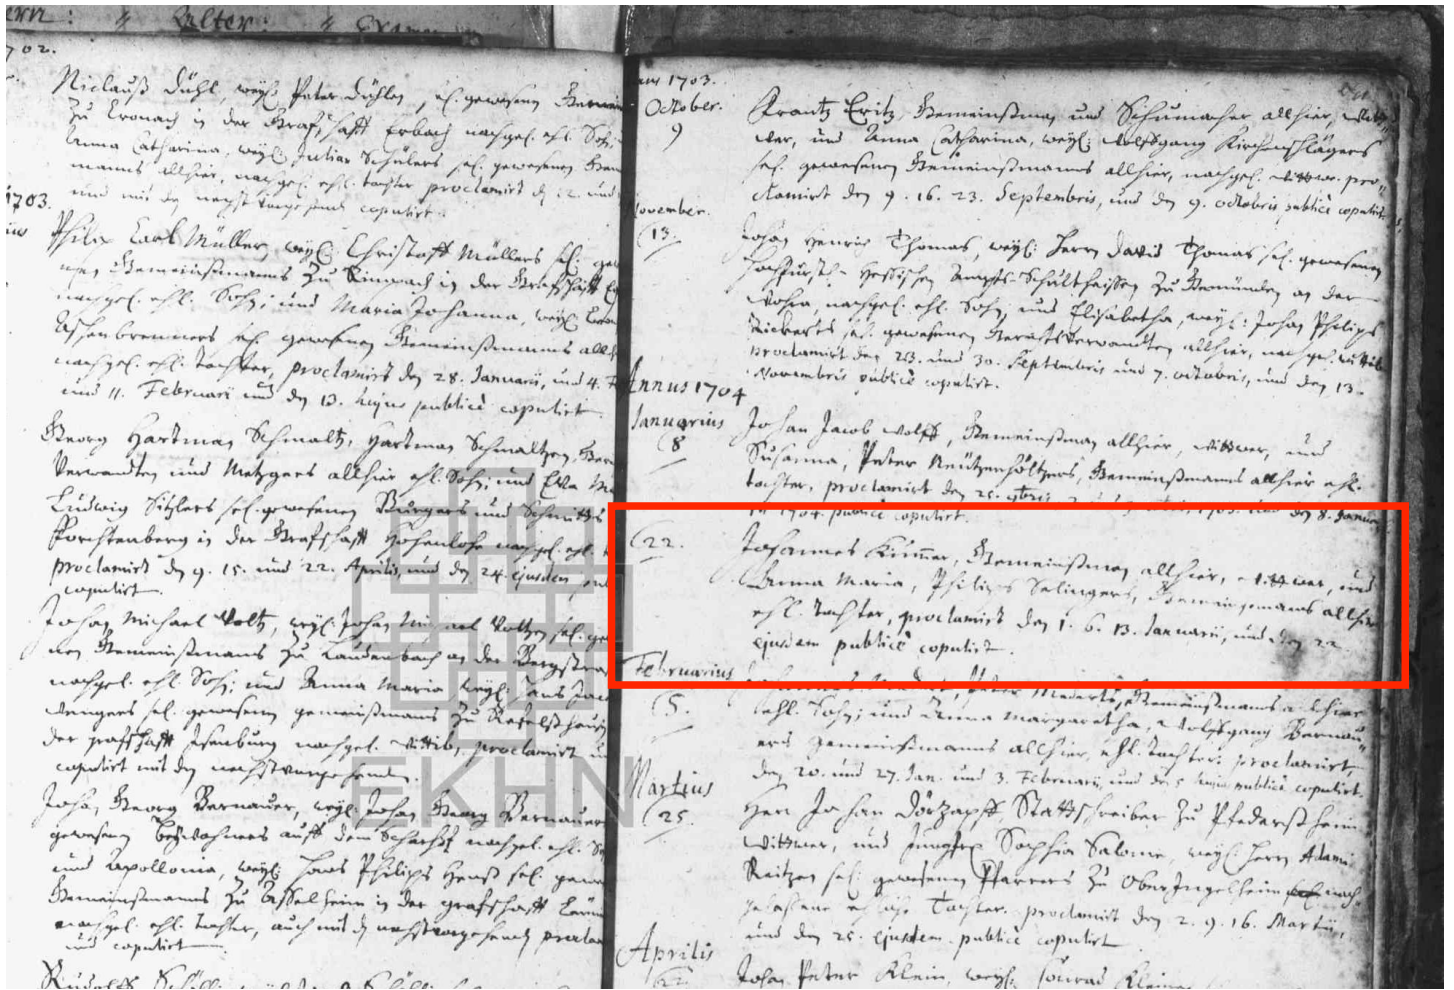 ern: Alter: Examen
1702.
Niclauß Dühl, weyl. Peter Dühlen, sel. gewesenen Gemein
zu Cronach in der Grafschafft Erbach nachgel. ehl. Sohn,
Anna Catharina, weyl. Schülers sel. gewesenen Gem
manns allhier, nachgel. ehl. tochter proclamirt d 12. und
und mit dem copulirt.
1703.
Philip Carl Müller, weyl. Christoff Müllers sel. gew
Gemeinßmanns zu in der Grafschafft
nachgel. ehl. Sohn; und Maria Johanna, weyl.
Aschenbrenners sel. gewesenen Gemeinßmanns allh
nachgel. ehl. tochter, proclamirt den 28. Januarii, und 4. F
und 11. Februarii und den 13. hujus publicè copulirt
Georg Hartman Schmaltz, Hartman Schmaltzen,
Verwandten und Metzgers allhier ehl. Sohn; und Eva Ma
Ludwig Sitzlers sel. gewesenen Burgers und Schmitts
Forchtenberg in der Grafschafft Hohenlohe nachgel. ehl. t
proclamirt den 9. 15. und 22. Aprilis, und den 24. ejusdem
copulirt.
Johan Michael Voltz, weyl. Johan Michael Voltzen sel. ge
nen Gemeinßmanns zu Laudenbach an der Bergstra
nachgel. ehl. Sohn; und Anna Maria weyl. Hans
sel. gewesenen gemeinßmanns zu
der grafschafft Isenburg nachgel. Wittib, proclamirt u
copulirt mit den nechstvorgehenden.
Johan Georg Bernauer, weyl. Johan Georg Bernauer
gewesenen Beywohners auff dem nachgel. ehl. S
und Apollonia, weyl. Hans Philips sel. gewe
Gemeinßmanns zu Asselheim in der grafschafft
nachgel. ehl. tochter, auch mit den nechstvorgehenden procla
und copulirt
Rudolff
1703.
October.
9
Frantz Eritz, Gemeinßman und Schumacher allhier, Witt
wer, und Anna Catharina, weyl. Wolffgang Kirchenschlägers
sel. gewesenen Gemeinßmanns allhier, nachgel. Wittwe. pro
clamirt den 9. 16. 23. Septembris, und den 9. octobris publicè copulirt
November.
13.
Johan Henrich Thomas, weyl. Herrn David Thomas sel. gewesenen
Hochfürstl. Hessischen Ampts-Schultheissen zu Gemünden an der
Wohra, nachgel. ehl. Sohn; und Elisabetha, weyl. Johan Philips
Rickerts sel. gewesenen Gerichtsverwandten allhier, nachgel. Wittib
proclamirt den 23. und 30. Septembris und 7. octobris, und den 13.
Novembris publicè copulirt.
Annus 1704
Januarius
8
Johan Jacob Wolff, Gemeinßman allhier, Wittwer, und
Susanna, Peter Gemeinßmanns allhier ehl.
tochter, proclamirt den 25. 9bris 1703. und den 8. Januar
1704. publicè copulirt.
22.
Johannes Kimmer, Gemeinßman allhier, Wittwer, und
Anna Maria, Philips Salingers, Gemeinßmanns allhier
ehl. tochter, proclamirt den 1. 6. 13. Januarii, und den 22
ejusdem publicè copulirt.
Februarius
5.
Peter Gemeinßmanns allhier
ehl. Sohn; und Anna Margaretha, Wolffgang Bernau
ers gemeinßmanns allhier, ehl. tochter. proclamirt,
den 20. und 27. Jan. und 3. Februarii, und den 5. hujus publicè copulirt.
Martius
25.
Herr Johan Dörzapff, Stattschreiber zu Pfedersheim
Wittwer, und Jungfr. Sophia Salome, weyl. Herrn Adami
Reitzen sel. gewesenen Pfarrers zu Ober Ingelheim nach
gelassene ehliche Tochter. proclamirt den 2. 9. 16. Martii,
und den 25. ejusdem publicè copulirt
Aprilis
Johan Peter Klein weyl. Conrad Kleinen
EKHN